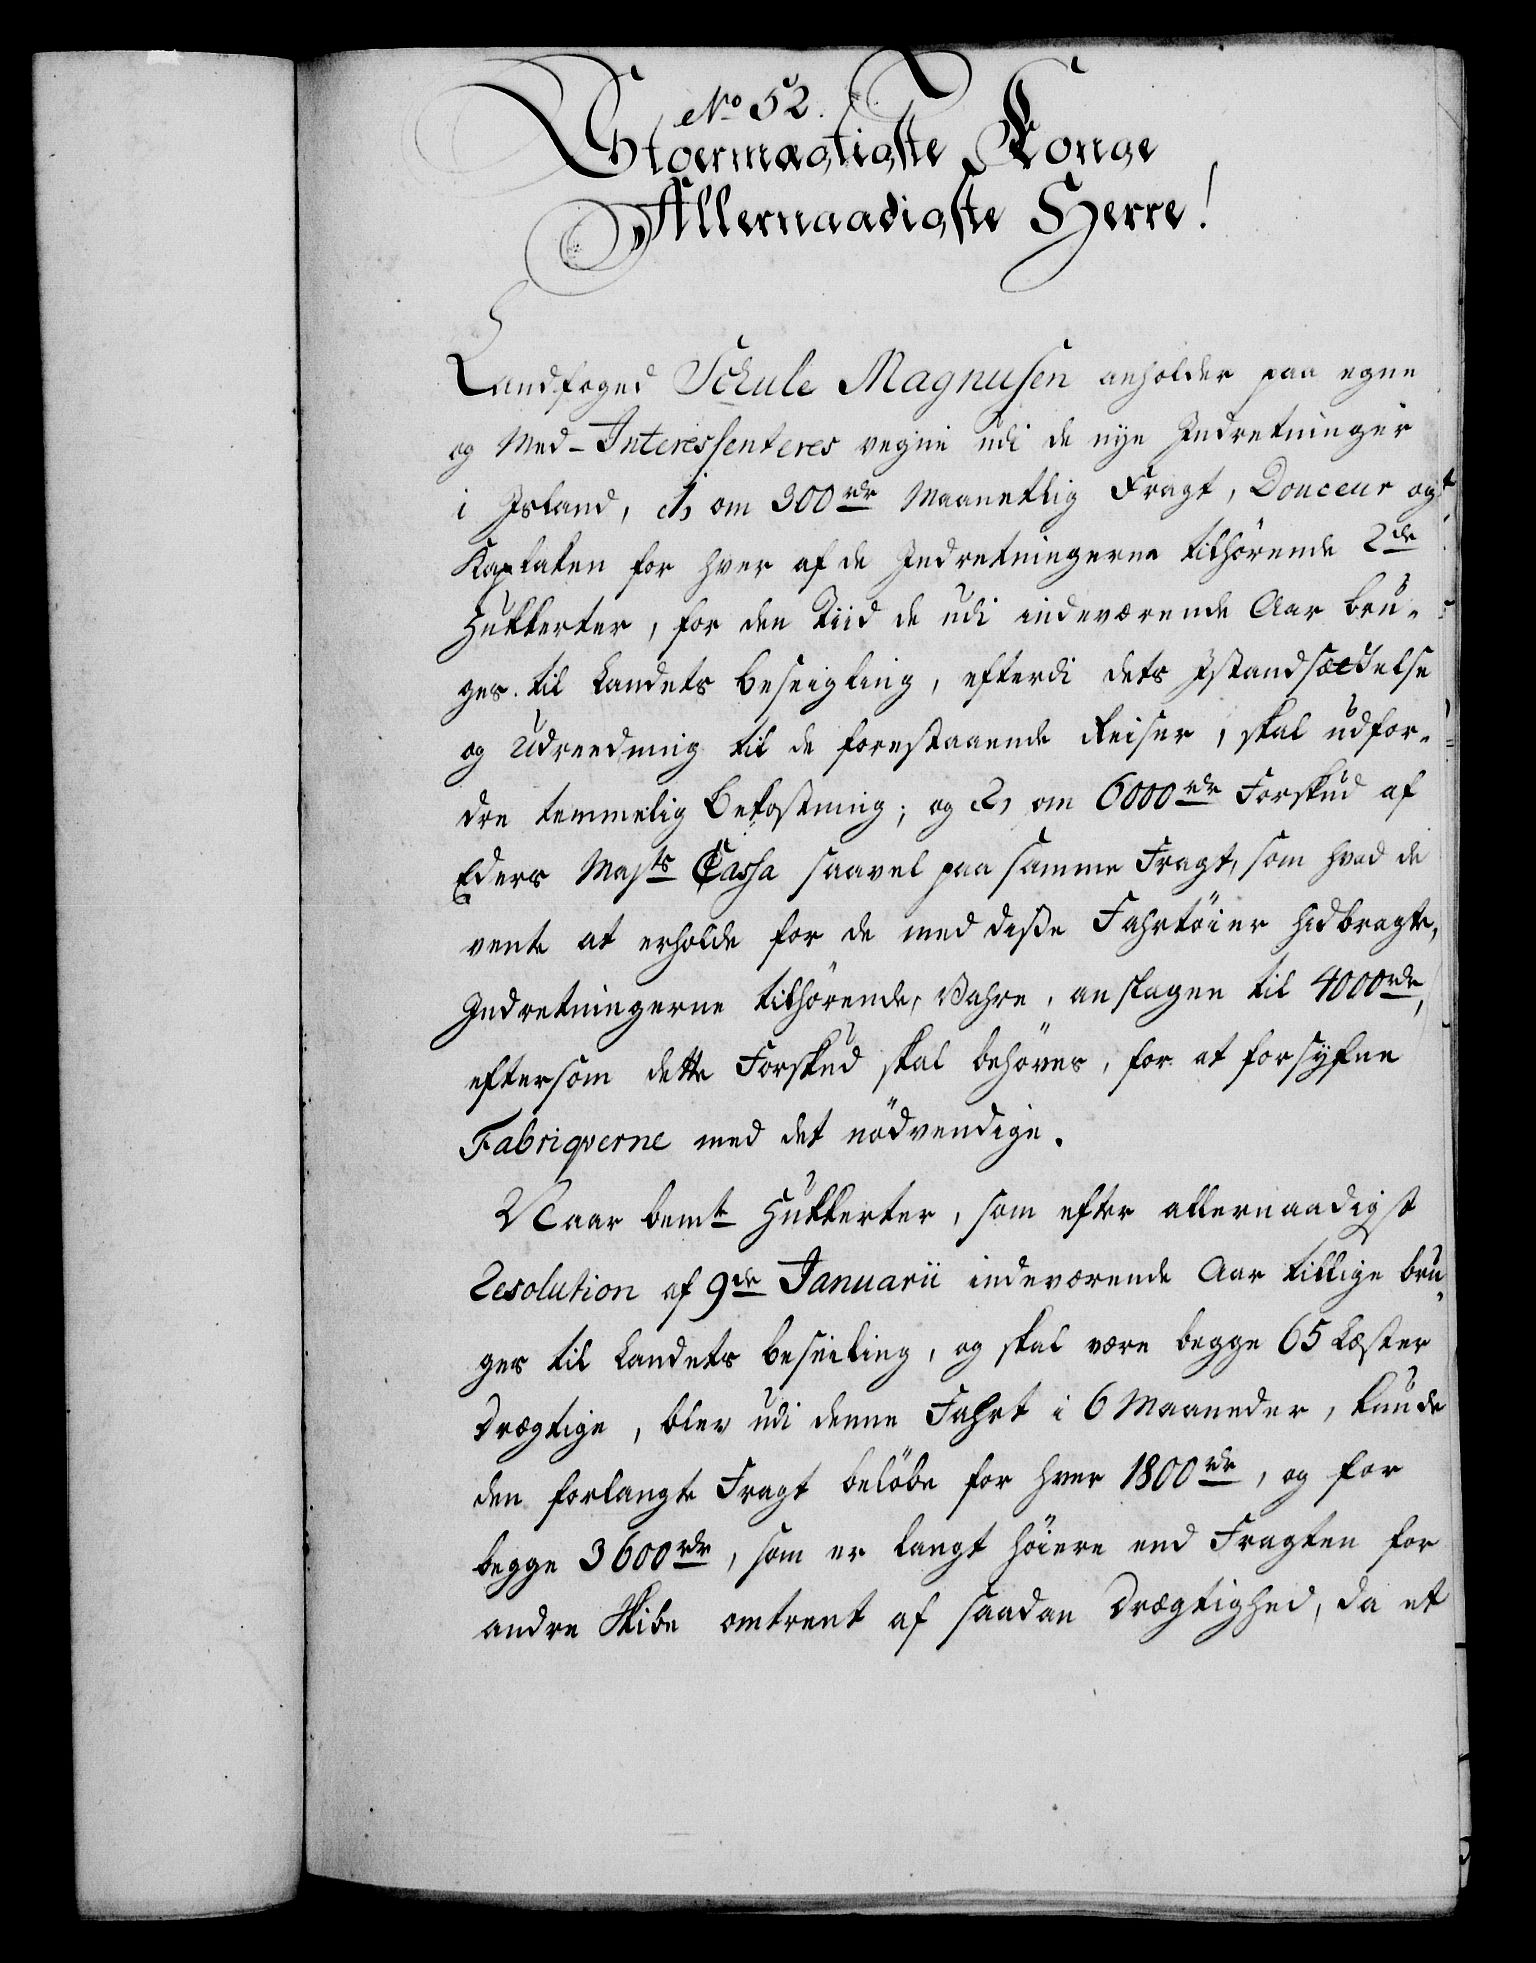 No 52.
Stormægtigste Konge
Allernaadigste Herre!
Landfoged Schule Magnusen anholder paa egne
og Med-Interessenteres vegne udi de nye Indretninger
i Island, 1, om 300 rdr Maanetlig Fragt, Douceur og
Kaplaken for hver af de Indretningerne tilhörende 2de
Hukkerter, for den Tiid de udi indeværende Aar bru-
ges til Landets Beseigling, efterdi dets Istandsættelse
og Udreedning til de forestaaende Reiser, skal udfor-
dre temmelig Bekostning; og 2, om 6000 rdr Forskud af
Eders Majts Cassa saavel paa samme Fragt, som hvad de
vente at erholde for de med disse Fahrtöier hidbragte,
Indretningerne tilhörende, Vahre, anslagen til 4000 rdr,
eftersom dette Forskud skal behöves, for at forsyne
Fabriqverne med det nödvendige.
Naar bemte Hukkerter, som efter allernaadigst
Resolution af 9de Januarii indeværende Aar tillige bru-
ges til Landets Beseiling, og skal være begge 65 Læster
drægtige, blev udi denne Fahrt i 6 Maaneder, kunde
den forlangte Fragt belöbe for hver 1800 rdr, og for
begge 3600 rdr, som er langt höiere end Fragten for
andre Skibe omtrent af saadan Drægtighed, da et